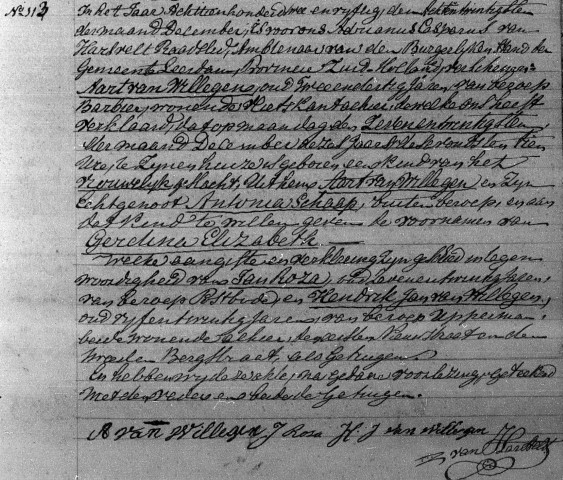 No 113 In het Jaar Achttienhonderd twee en vyftig, den
der maand December, Es voor ons Adrianus Casparus van
Hartvelt Raadslid, Ambtenaar van den Burgerlyken Stand der
Gemeente Leerdam, Provincie Zuid Holland, verschenen
Aart van Willegen, oud Twee en dertig Jaren, van beroep
Barbier, wonende alhier, dewelke ons heeft
verklaard, dat op maandag den Zevenentwintigsten
der maand December dezes Jaars des
Ure, te zynen huize is geboren een kind van het
vrouwelyk geslacht, uit hem Aart van Willegen en zyn
echtgenoot Antonia Schaap, buiten beroep en aan
dat kind te willen geven de voornamen van
Gerdina Elizabeth
Welke aangifte en verklaring zyn geschied in tegen
woordigheid van Jan Roza, oud zeven en twintig Jaren,
van beroep en Hendrik Jan van Willegen,
oud vyf en twintig Jaren, van beroep
beide wonende alhier, de eersten en de
tweeden Bergstraat, als getuigen.
En hebben wy deze akte, na gedane voorlezing, geteekend
met den vader en beide de Getuigen.
A van Willegen J Roza H J van Willegen
van Hartvelt